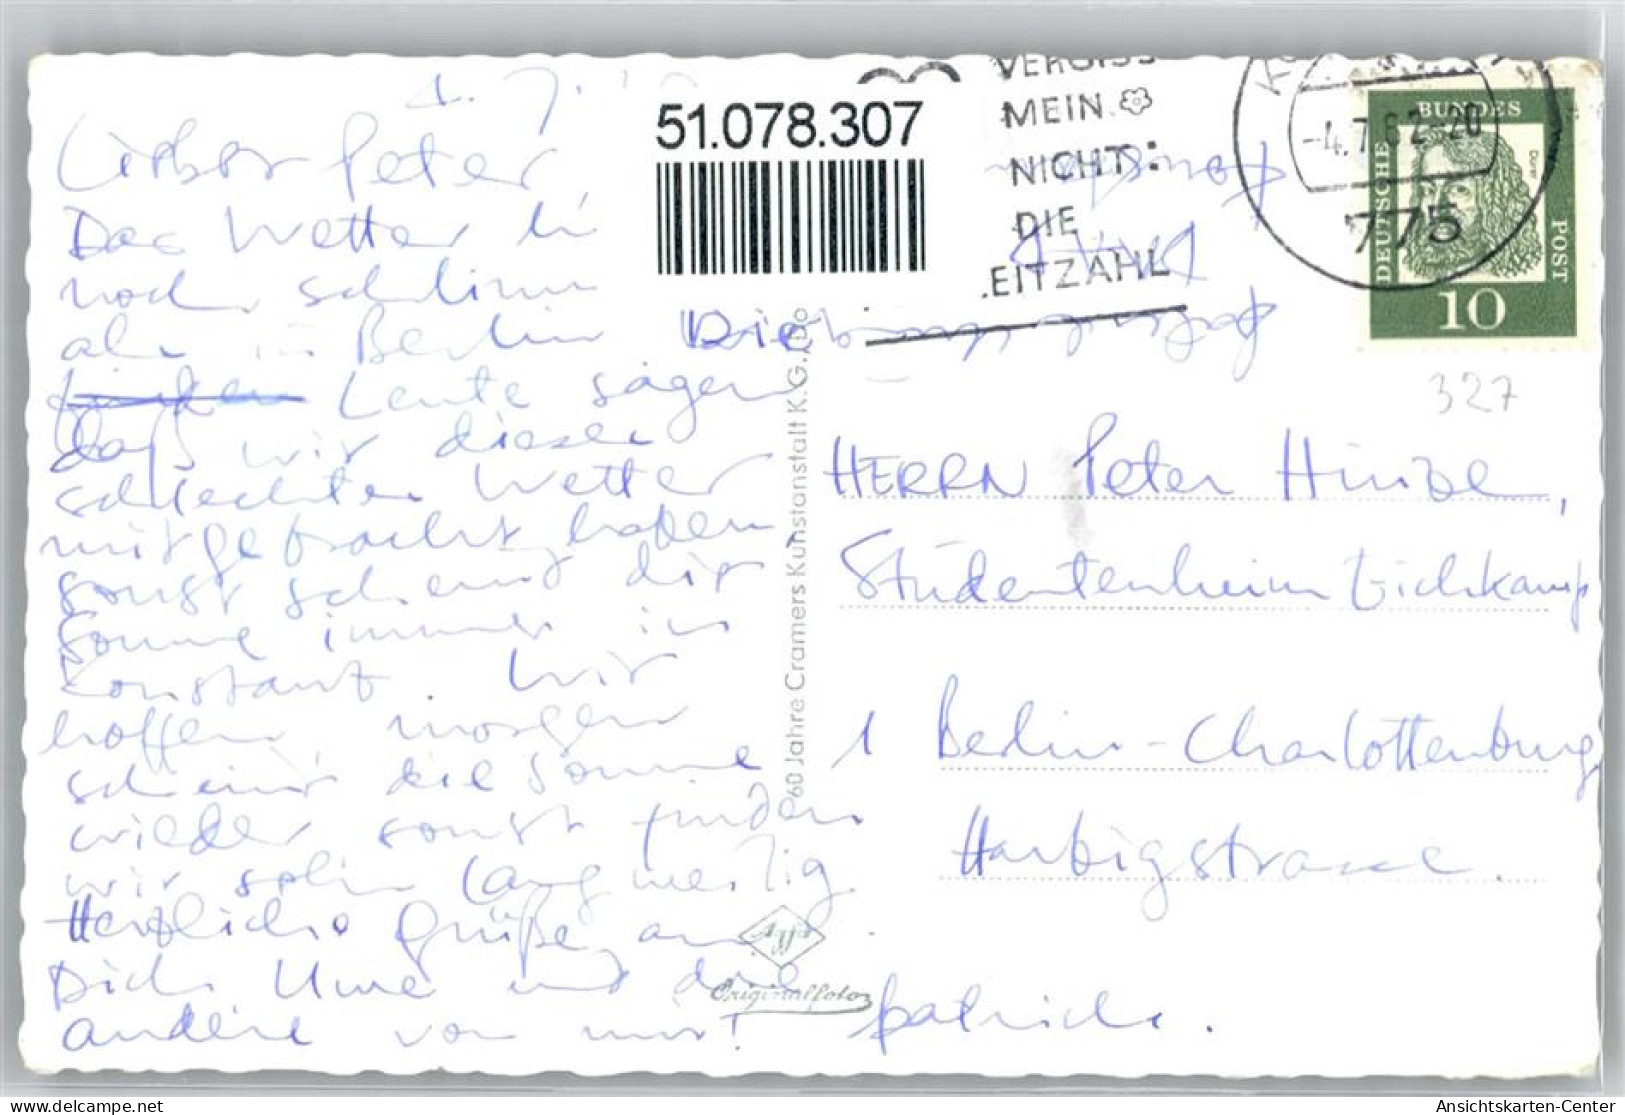 Lieber Peter,
Das Wetter
noch schlimm
als in Berlin Die
Leute sagen
daß wir dieses
schlechten Wetter
mitgebracht haben
sonst scheint die
Sonne immer in
Konstanz. Wir
hoffen, morgen
scheint die Sonne
wieder sonst finden
wir sehr langweilig
Herzliche Grüße an
Dich Uwe und die
andere von mir! Patrick.
51.078.307
VERGISS
MEIN
NICHT:
DIE
LEITZAHL
-4.7.62-20
775
DEUTSCHE
BUNDES
POST
Dürer
10
327
HERRN Peter Hinze,
Studentenheim Eichkamp
1 Berlin-Charlottenburg
Harbigstrasse.
60 Jahre Cramers Kunstanstalt K.G., Do
Agfa
Originalfoto
Ansichtskarten-Center
delcampe.net